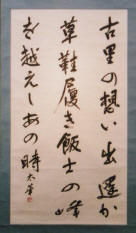 古里の想い出遥か
草鞋履き飯士の峰
を越えしあの時